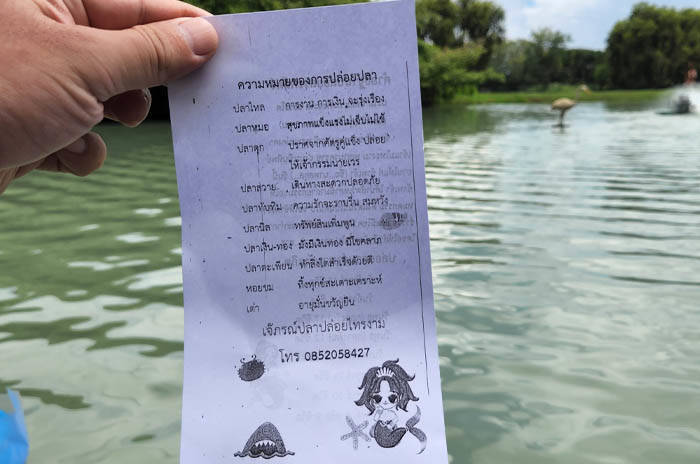 ความหมายของการปล่อยปลา
ปลาไหล การงาน การเงิน จะรุ่งเรือง
ปลาหมอ สุขภาพแข็งแรงไม่เจ็บไม่ไข้
ปลาดุก ปราศจากศัตรูคู่แข่ง ปล่อย
ให้เจ้ากรรมนายเวร
ปลาสวาย เดินทางสะดวกปลอดภัย
ปลาทับทิม ความรักจะราบรื่น สมหวัง
ปลานิล ทรัพย์สินเพิ่มพูน
ปลาเงิน-ทอง มั่งมีเงินทอง มีโชคลาภ
ปลาตะเพียน ทำสิ่งใดสำเร็จด้วยดี
หอยขม ทิ้งทุกข์สะเดาะเคราะห์
เต่า อายุมั่นขวัญยืน
เจ๊ภรณ์ปลาปล่อยไทรงาม
โทร 0852058427